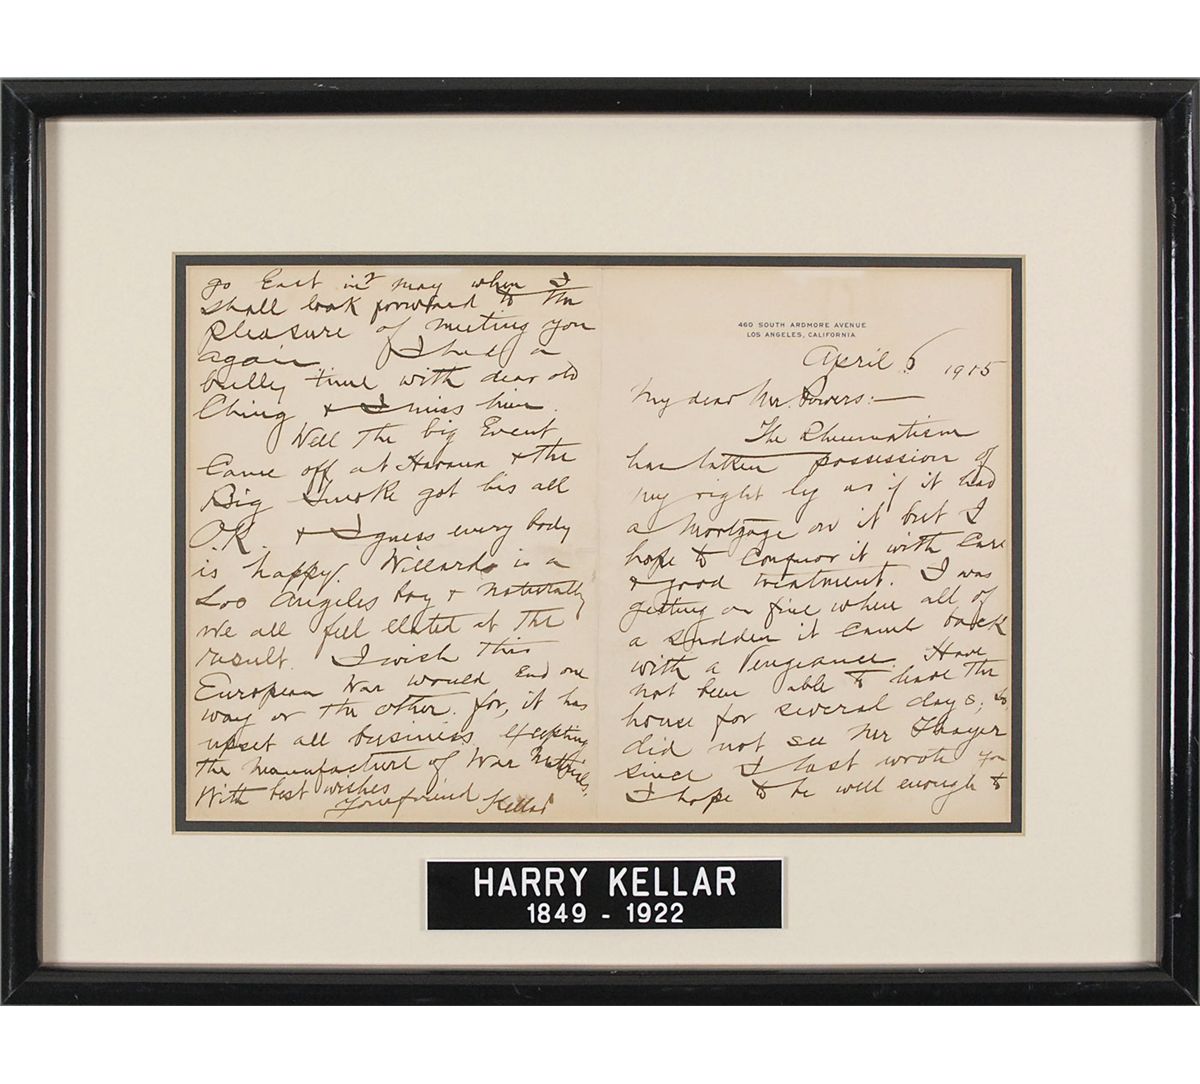 460 SOUTH ARDMORE AVENUE
LOS ANGELES, CALIFORNIA
April 6 1915
My dear Mr. Powers:—
The Rheumatism
has taken possession of
my right leg as if it had
a Mortgage on it but I
hope to Conquor it with Care
& good treatment. I was
getting on fine when all of
a sudden it came back
with a Vengeance. Have
not been able to leave the
house for several days, so
did not see Mr Thayer
since I last wrote you
I hope to be well enough to
go East in May when I
shall look forward to the
pleasure of meeting you
again I had a
bully time with dear old
Ching & I miss him.
Well the big Event
Came off at Havana & the
Big Smoke got his all
OK. & I guess every body
is happy. Willard is a
Los Angeles boy & naturally
we all feel elated at the
result. I wish this
European War would End one
way or the other. for, it has
upset all business Excepting
the manufacture of War
With best wishes
Your friend Kellar
HARRY KELLAR
1849 - 1922